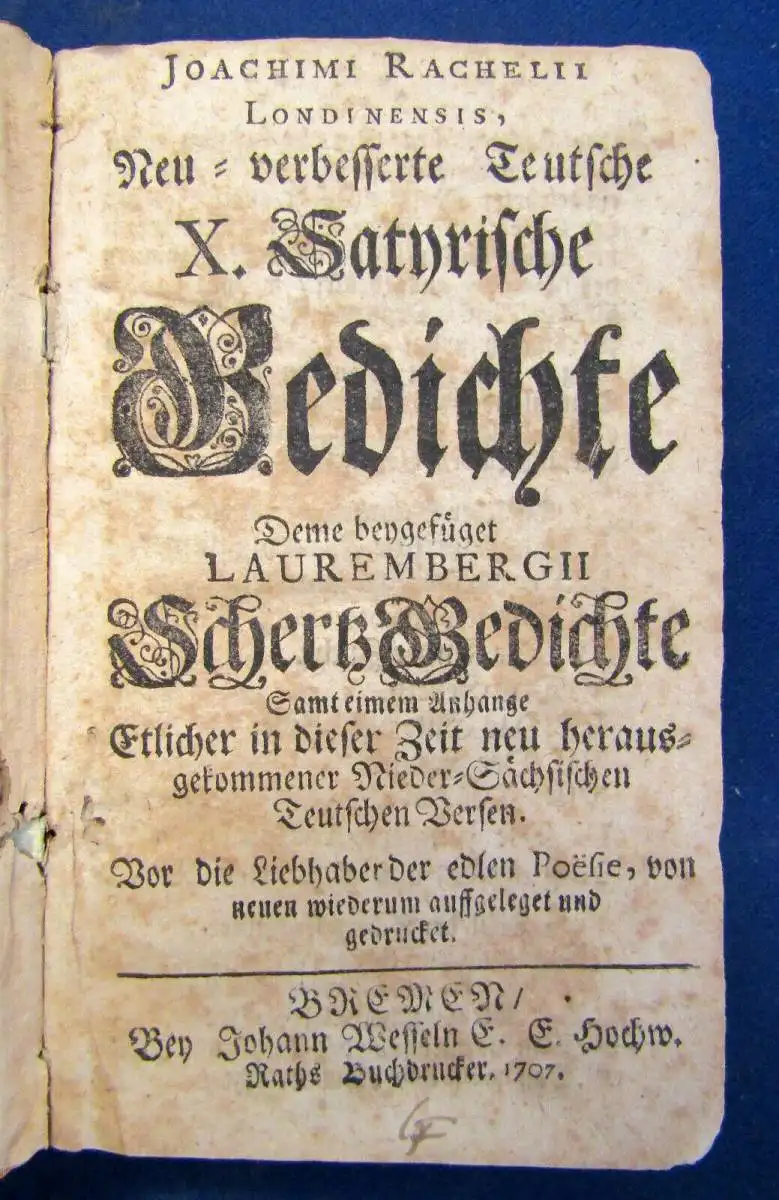 JOACHIMI RACHELII
LONDINENSIS,
Neu-verbesserte Teutsche
X. Satyrische
Gedichte
Deme beygefüget
LAUREMBERGII
Schertz Gedichte
Samt eimem Anhange
Etlicher in dieser Zeit neu heraus-
gekommener Nieder-Sächsischen
Teutschen Versen.
Vor die Liebhaber der edlen Poësie, von
neuen wiederum auffgeleget und
gedrucket.
BREMEN/
Bey Johann Wesseln E. E. Hochw.
Raths Buchdrucker. 1707.